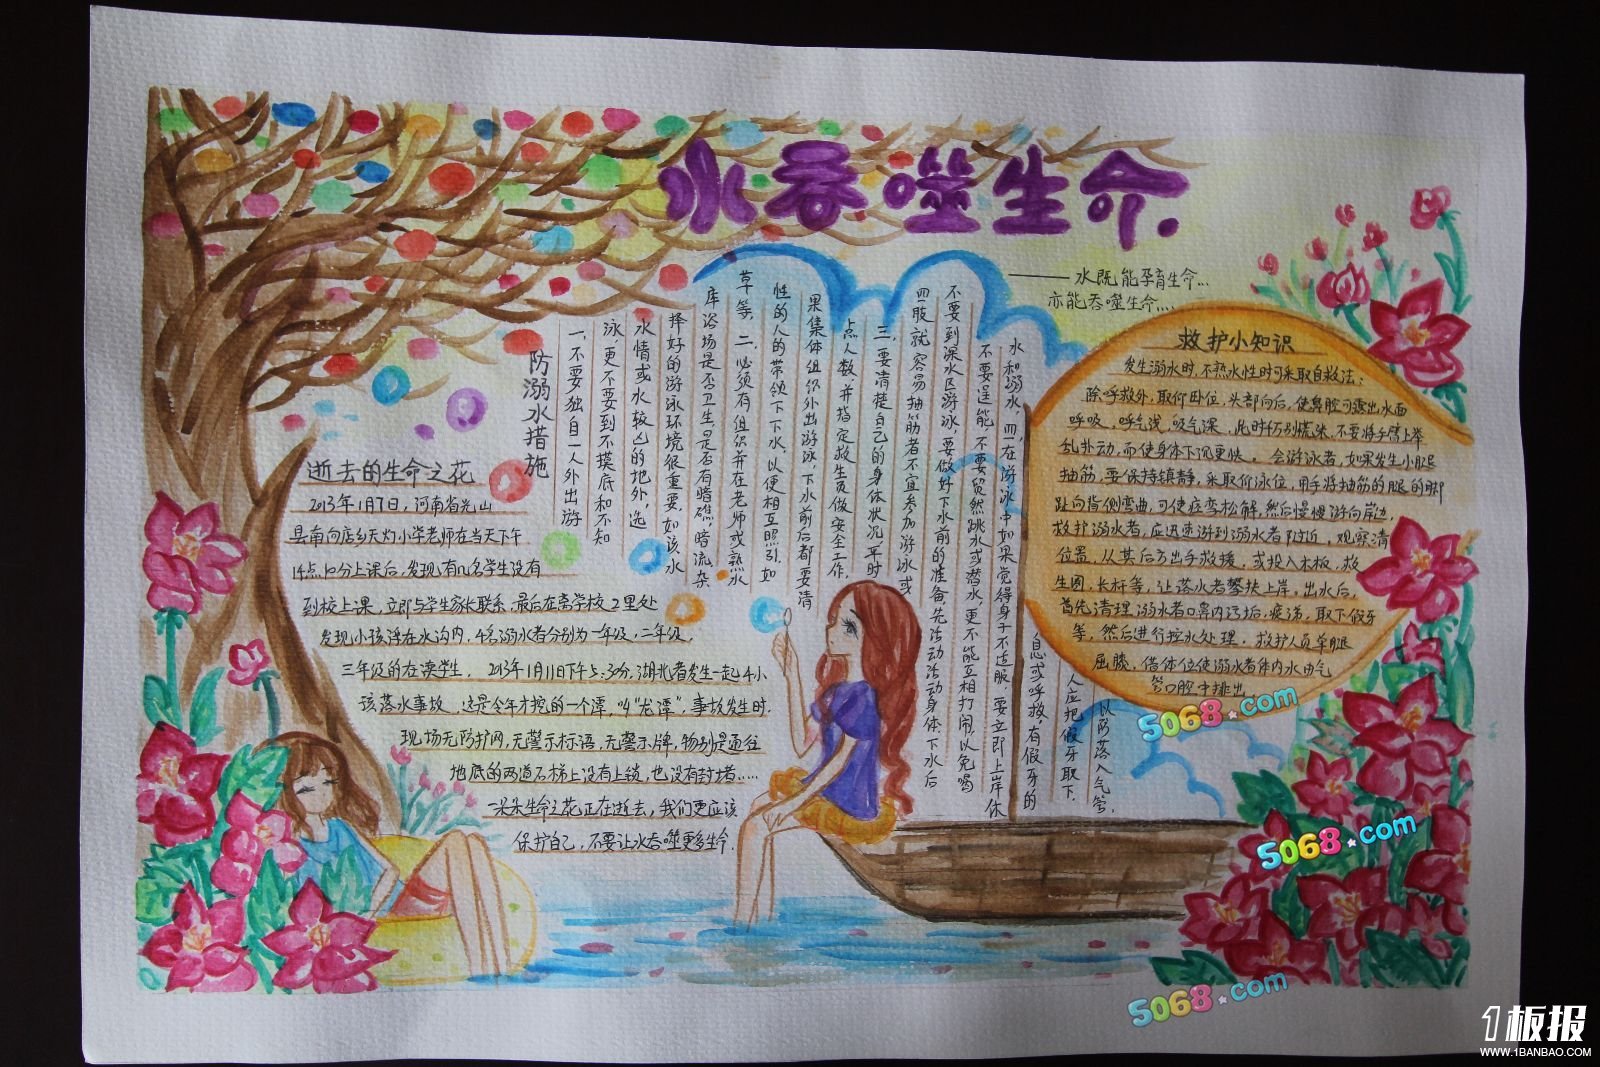 水吞噬生命.
——水既能孕育生命...
亦能吞噬生命...
逝去的生命之花
2013年1月7日，河南省光山
县南向店乡天灯小学老师在当天下午
14点10分上课后，发现有几名学生没有
到校上课，立即与学生家长联系，最后在离学校2里处
发现小孩浮在水沟内，4名溺水者分别为一年级，二年级，
三年级的在读学生. 2013年1月11日下午5:30分，湖北省发生一起4小
孩落水事故，这是今年才挖的一个潭，叫“龙潭”，事故发生时，
现场无防护网，无警示标语，无警示牌，特别是通往
地底的两道石梯上没有上锁，也没有封堵……
一朵朵生命之花正在逝去，我们更应该
保护自己，不要让水吞噬更多生命.
防溺水措施
一、不要独自一人外出游
泳，更不要到不摸底和不知
水情或水较凶的地外，选
择好的游泳环境很重要，如该水
库浴场是否卫生，是否有暗礁，暗流，杂
草等. 二、必须有组织并在老师或熟水
性的人的带领下下水，以便相互照引，如
果集体组织外出游泳，下水前后都要清
点人数，并指定救生员做安全工作.
三、要清楚自己的身体状况，平时
四肢就容易抽筋者不宜参加游泳或
不要到深水区游泳，要做好下水前的准备，先活动活动身体，下水后
不要逞能，不要贸然跳水或潜水，更不能互相打闹，以免喝
水和溺水，四、在游泳中如果觉得身子不适服，要立即上岸休
息或呼救，有假牙的
人应把假牙取下，
以防落入气管.
救护小知识
发生溺水时，不熟水性时可采取自救法：
除呼救外，取仰卧位，头部向后，使鼻腔可露出水面
呼吸，呼气浅，吸气深. 此时千万别慌张，不要将手臂上举
乱扑动，而使身体下沉更快. 会游泳者，如果发生小腿
抽筋，要保持镇静，采取仰泳位，用手将抽筋的腿的脚
趾向背侧弯曲，可使痉挛松解，然后慢慢游向岸边，
救护溺水者，应迅速游到溺水者附近，观察清
位置，从其后方出手救援. 或投入木板，救
生圈，长杆等，让落水者攀扶上岸. 出水后，
首先清理溺水者口鼻内污垢，痰涕，取下假牙
等，然后进行控水处理，救护人员单腿
屈膝，借体位使溺水者体内水由气
管口腔中排出
5068.com
5068.com
5068.com
1板报
WWW.1BANBAO.COM